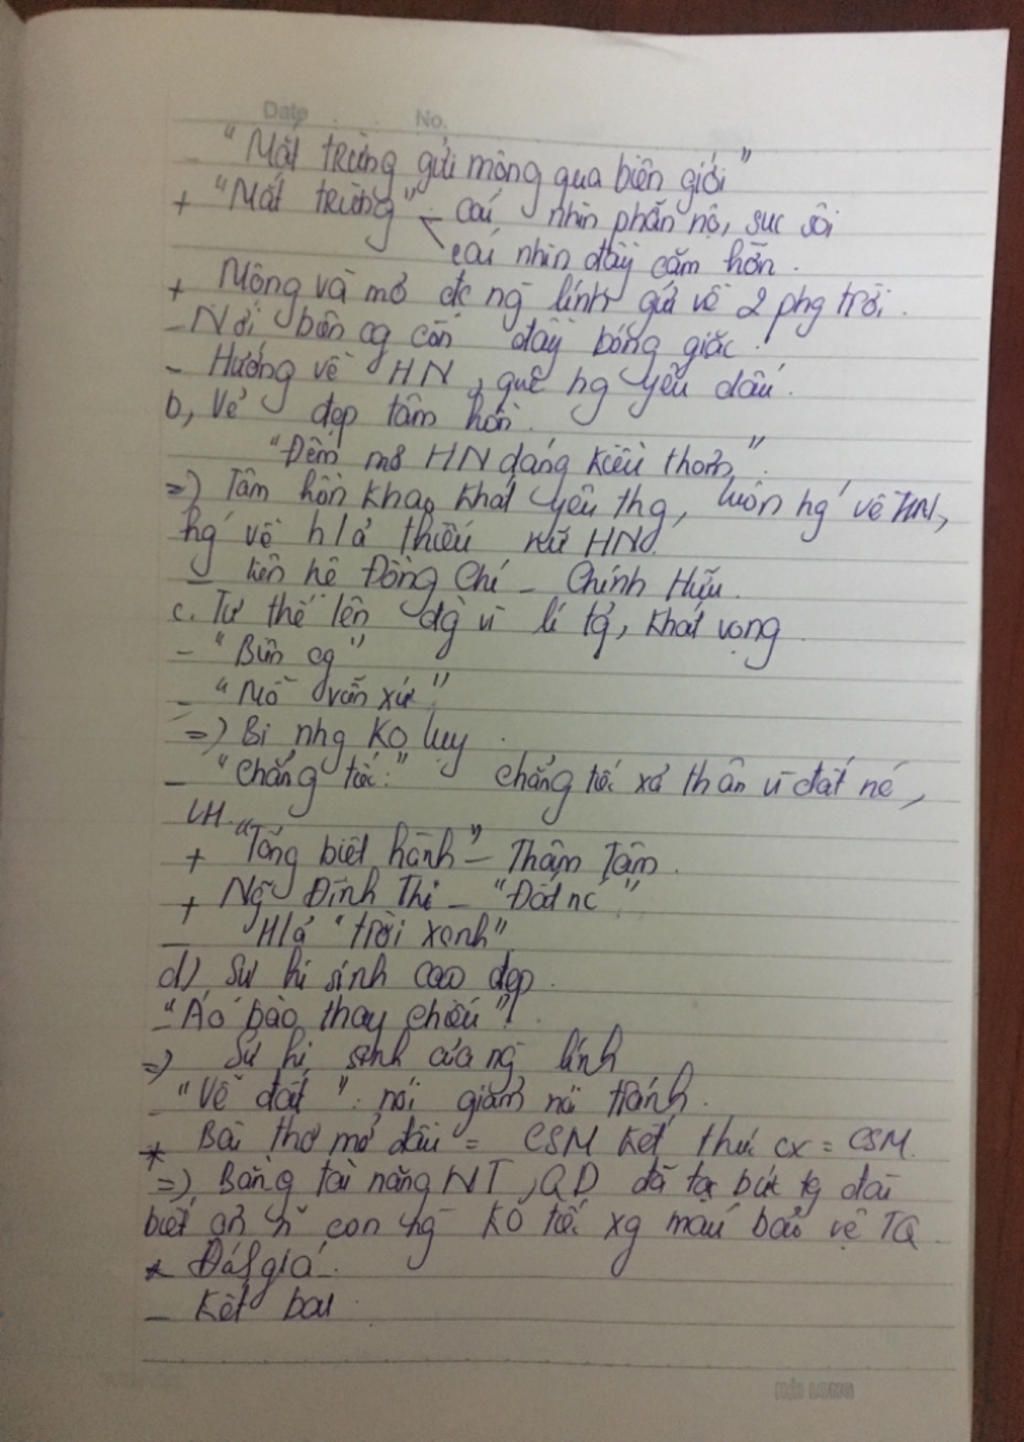 Date No.
"Mắt trừng gửi mộng qua biên giới"
+ "Mắt trừng" - cái nhìn phẫn nộ, sục sôi
cái nhìn đầy căm hờn.
+ Mộng và mơ đc ng lính gửi về 2 phg trời.
- Nơi biên cg còn đầy bóng giặc.
- Hướng về HN, quê hg yêu dấu.
b, Vẻ đẹp tâm hồn.
"Đêm mơ HN dáng kiều thơm".
=> Tâm hồn khao khát yêu thg, luôn hg về HN,
hg về h/ả thiếu nữ HN.
- liên hệ Đồng Chí - Chính Hữu.
c. Tư thế lên đg vì lí tg, khát vọng
- "Biên cg"
- "Mồ viễn xứ"
=> Bi nhg ko lụy.
- "Chẳng tiếc:" chẳng tiếc xả thân vì đất nc,
LH.
+ "Tống biệt hành" - Thâm Tâm.
+ Ng Đình Thi - "Đất nc"
- H/ả "trời xanh"
d) Sự hi sinh cao đẹp.
- "Áo bào thay chiếu":
=> Sự hi sinh của ng lính
- "Về đất": nói giảm nói tránh.
* Bài thơ mở đầu = CSM kết thúc cx = CSM.
=> Bằng tài năng NT, QD đã tạc bức tg đài
biết ơn con ng ko tiếc xg máu bảo vệ TQ.
* Đánh giá.
- Kết bài.
HẢI LONG